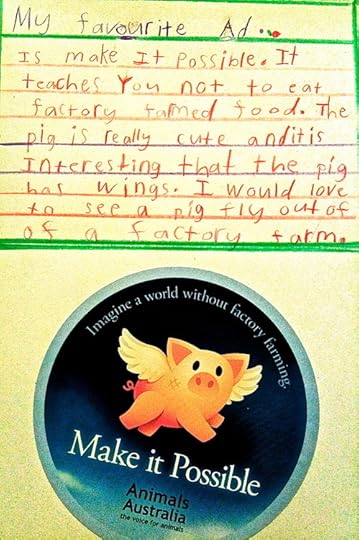 My favourite Ad...
Is make It Possible. It
teaches You not to eat
factory farmed food. The
pig is really cute anditis
Interesting that the pig
has wings. I would love
to see a pig fly out of
of a factory farm.
Imagine a world without factory farming.
Make it Possible
Animals
Australia
the voice for animals